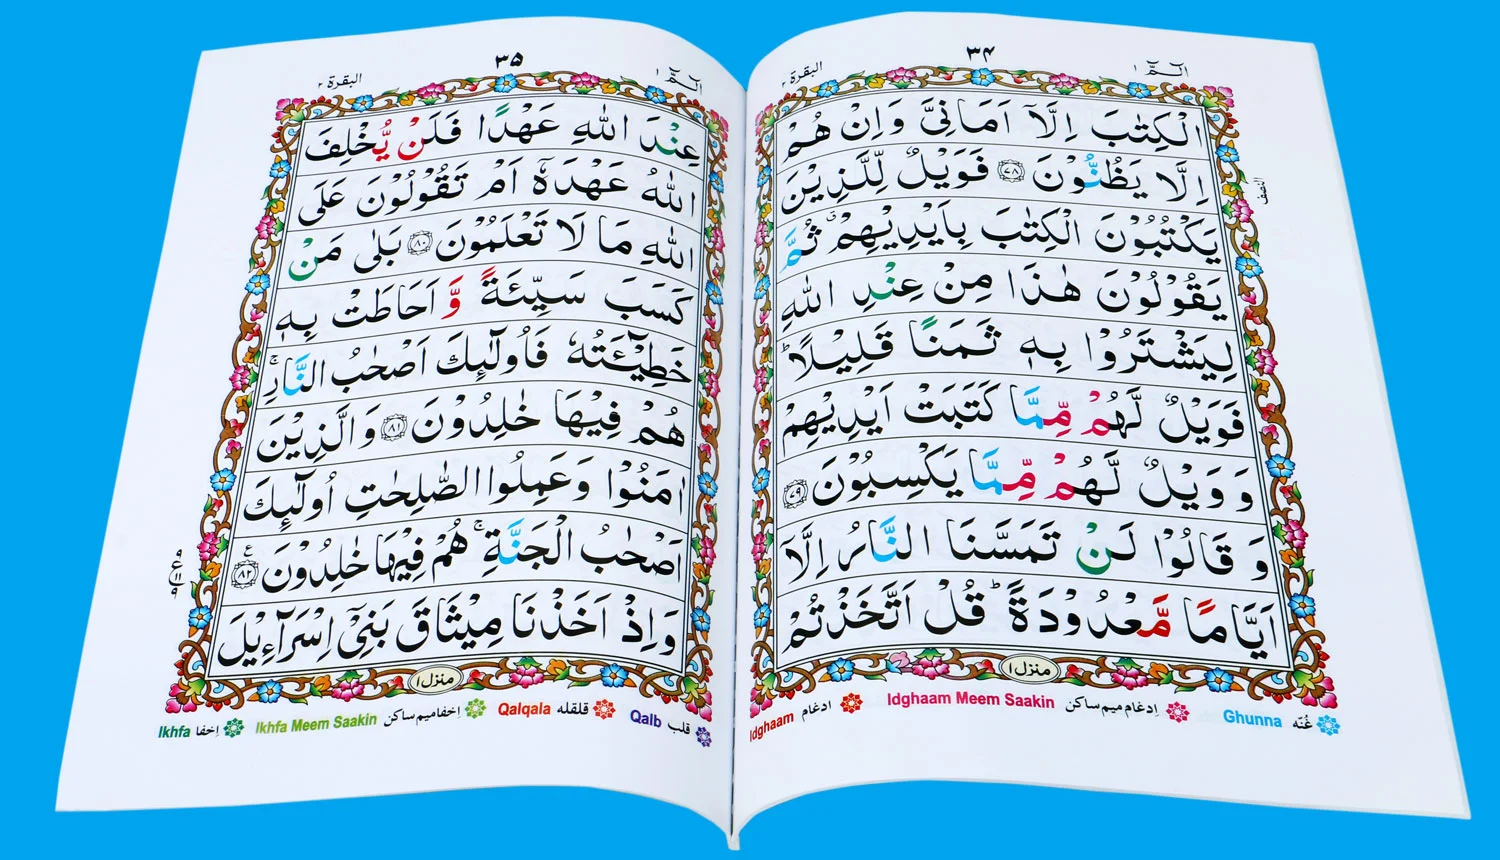 الٓمّٓ ۱
۳۴
البقرة ۲
الْكِتٰبَ اِلَّاۤ اَمَانِیَّ وَاِنْ هُمْ
اِلَّا يَظُنُّوْنَ ﴿۷۸﴾ فَوَيْلٌ لِّلَّذِيْنَ
يَكْتُبُوْنَ الْكِتٰبَ بِاَيْدِيْهِمْ ۗ ثُمَّ
يَقُوْلُوْنَ هٰذَا مِنْ عِنْدِ اللّٰهِ
لِيَشْتَرُوْا بِهٖ ثَمَنًا قَلِيْلًا ؕ
فَوَيْلٌ لَّهُمْ مِّمَّا كَتَبَتْ اَيْدِيْهِمْ
وَوَيْلٌ لَّهُمْ مِّمَّا يَكْسِبُوْنَ ﴿۷۹﴾
وَقَالُوْا لَنْ تَمَسَّنَا النَّارُ اِلَّاۤ
اَيَّامًا مَّعْدُوْدَةً ؕ قُلْ اَتَّخَذْتُمْ
النصف
منزل ۱
Idghaam ادغام
Idghaam Meem Saakin اِدغام میم ساکن
Ghunna غُنّه
الٓمّٓ ۱
۳۵
البقرة ۲
عِنْدَ اللّٰهِ عَهْدًا فَلَنْ يُّخْلِفَ
اللّٰهُ عَهْدَهٗۤ اَمْ تَقُوْلُوْنَ عَلَی
اللّٰهِ مَا لَا تَعْلَمُوْنَ ﴿۸۰﴾ بَلٰی مَنْ
كَسَبَ سَيِّئَةً وَّاَحَاطَتْ بِهٖ
خَطِيْٓـَٔتُهٗ فَاُولٰٓئِكَ اَصْحٰبُ النَّارِ ۚ
هُمْ فِيْهَا خٰلِدُوْنَ ﴿۸۱﴾ وَالَّذِيْنَ
اٰمَنُوْا وَعَمِلُوا الصّٰلِحٰتِ اُولٰٓئِكَ
اَصْحٰبُ الْجَنَّةِ ۚ هُمْ فِيْهَا خٰلِدُوْنَ ﴿۸۲﴾ ع
وَاِذْ اَخَذْنَا مِيْثَاقَ بَنِیْۤ اِسْرَآءِيْلَ
۹ ع ۱۱ ۹
منزل ۱
Ikhfa اِخفا
Ikhfa Meem Saakin اِخفا میم ساکن
Qalqala قلقله
Qalb قلب